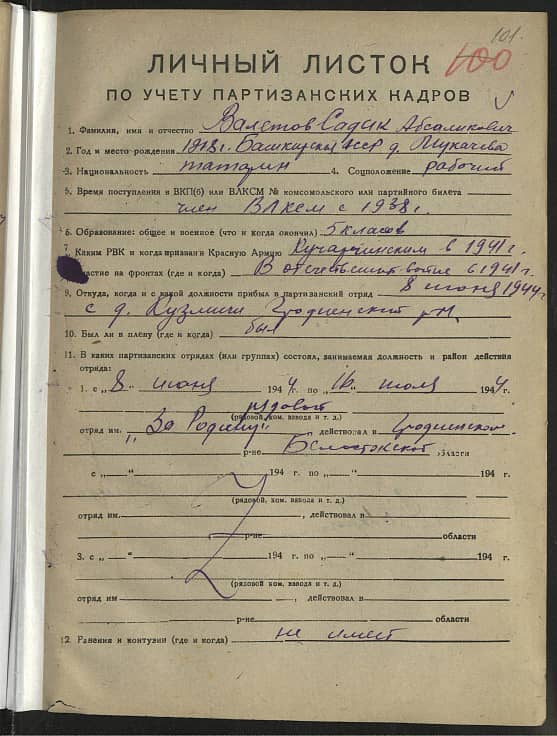 101
100
ЛИЧНЫЙ ЛИСТОК
ПО УЧЕТУ ПАРТИЗАНСКИХ КАДРОВ
1. Фамилия, имя и отчество Валетов Садык Абсаликович
2. Год и место рождения 1918 г. Башкирская АССР д.
3. Национальность татарин 4. Соцположение рабочий
5. Время поступления в ВКП(б) или ВЛКСМ № комсомольского или партийного билета
член ВЛКСМ с 1938 г.
6. Образование: общее и военное (что и когда окончил) 5 классов
7. Каким РВК и когда призван в Красную Армию в 1941 г.
участие на фронтах (где и когда) В отечественной войне в 1941 г.
9. Откуда, когда и с какой должности прибыл в партизанский отряд 8 июня 1944 г.
с д. Гродненский р-н.
10. Был ли в плену (где и когда) был
11. В каких партизанских отрядах (или группах) состоял, занимаемая должность и район действия
отряда:
1. с „8 июня 1944 г. по „16" июля 1944 г.
рядовой
(рядовой, ком. взвода и т. д.)
отряд им. „За Родину", действовал в Гродненском
р-не Белостокской области
с „—"—194 г. по „—"—194 г.
(рядовой, ком. взвода и т. д.)
отряд им.—, действовал в—
р-не—области
3. с „—"—194 г. по „—"—194 г.
(рядовой, ком. взвода и т. д.)
отряд им—, действовал в—
р-не—области
12. Ранения и контузии (где и когда) не имеет